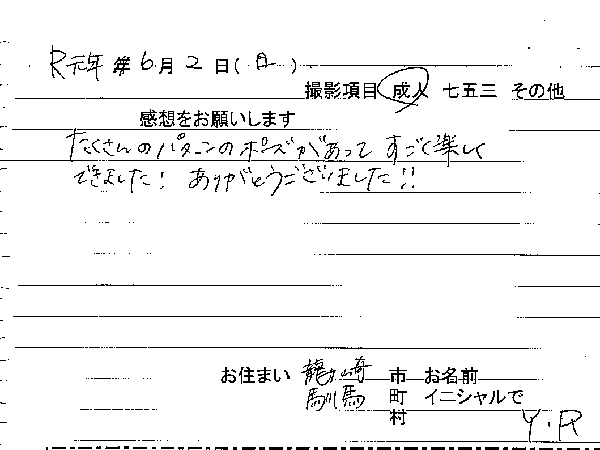 R元年 6月2日(日)
撮影項目 成人 七五三 その他
感想をお願いします
たくさんのパターンのポーズがあって すごく楽しく
できました! ありがとうございました!!
お住まい 龍ヶ崎 市 お名前
馴馬 町 イニシャルで
村 Y.R